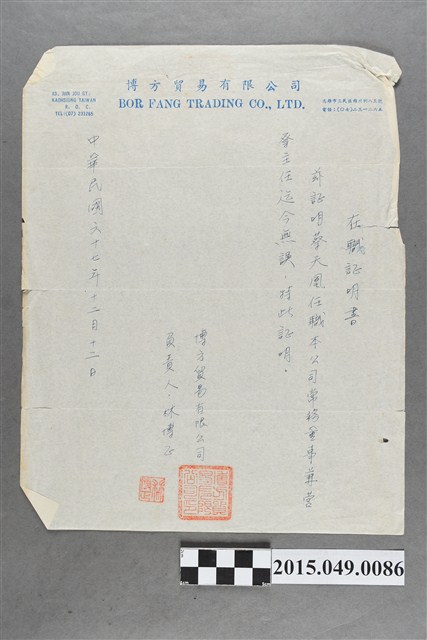 博方貿易有限公司
BOR FANG TRADING CO., LTD.
KAOHSIUNG TAIWAN
R. O. C.
TEL:(07) 231288
在職証明書
茲証明蔡天鳳任職本公司常務董事兼營
發主任迄今無誤，特此証明。
博方貿易有限公司
負責人．林博正
中華民國六十七年十二月十二日
2015.049.0086